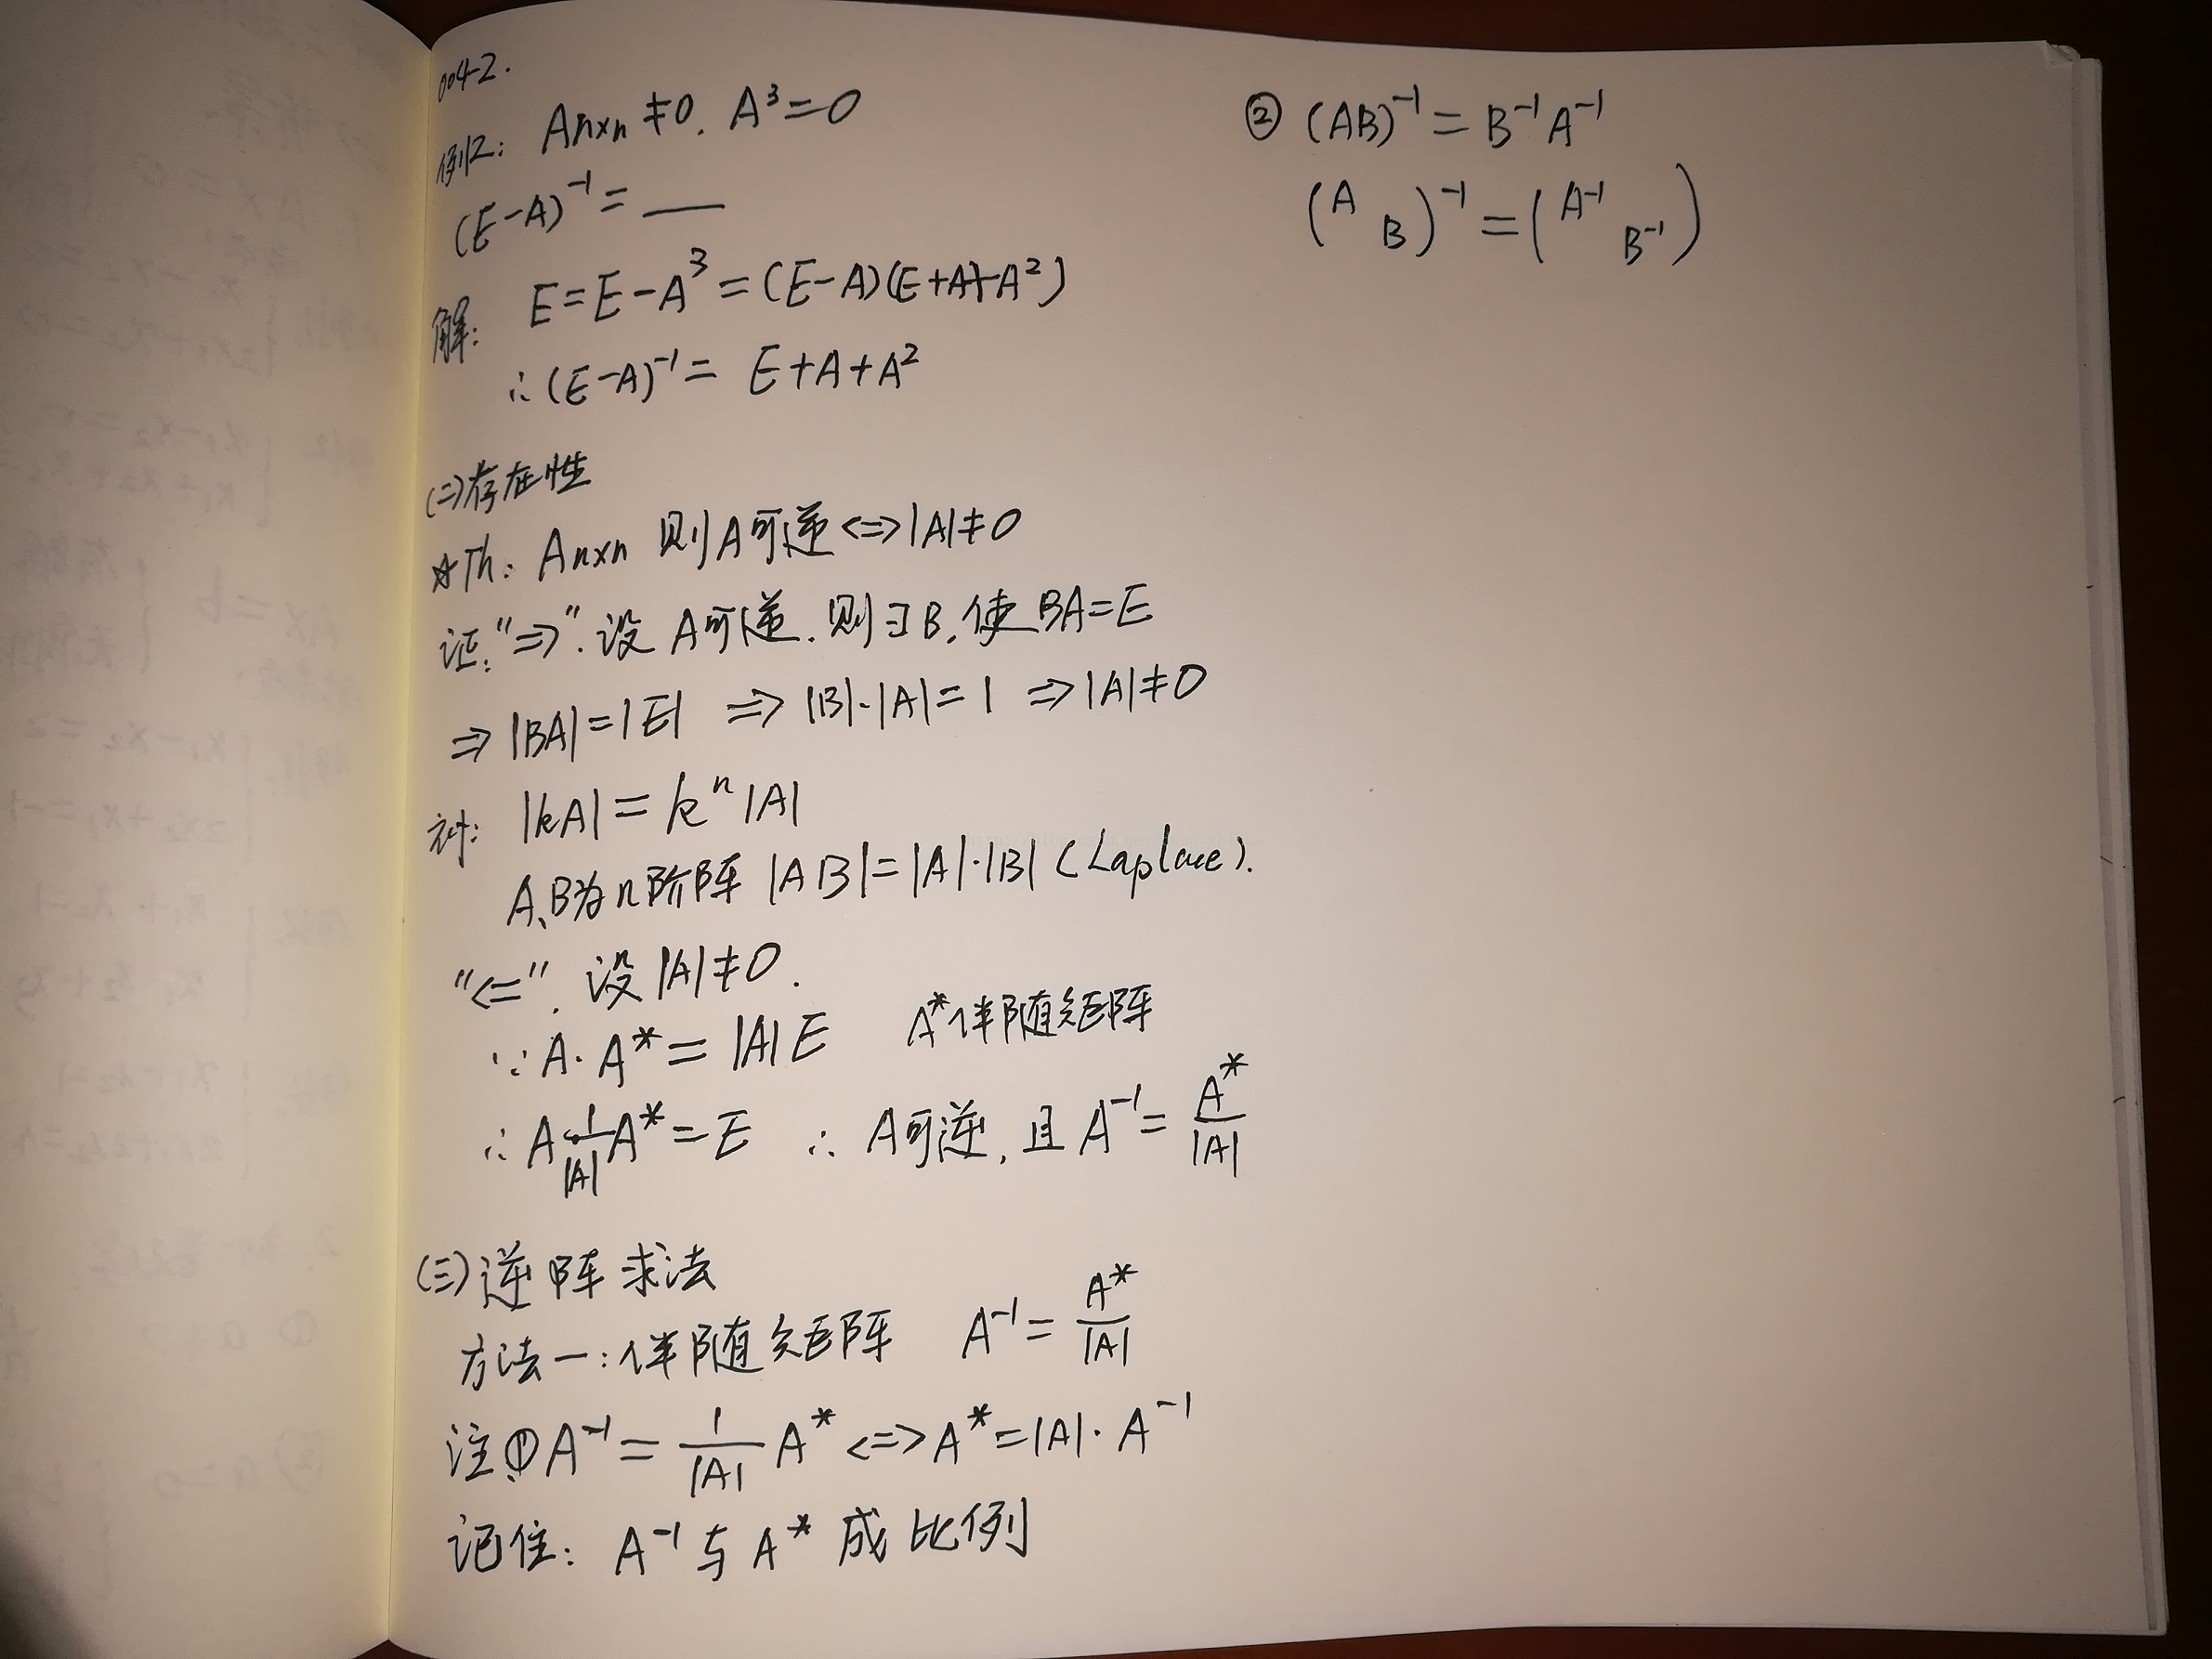 004-2.
例2: Aₙₓₙ ≠0. A³=0
(E-A)⁻¹= ___
解: E=E-A³=(E-A)(E+A+A²)
∴(E-A)⁻¹= E+A+A²
(二)存在性
☆Th: Aₙₓₙ 则A可逆<=>|A|≠0
证:"=>". 设 A可逆. 则∃B, 使BA=E
=> |BA|=|E| => |B|·|A|=1 => |A|≠0
补: |kA|=kⁿ|A|
A、B为n阶阵 |AB|=|A|·|B| (Laplace).
"<=". 设|A|≠0.
∵A·A*=|A|E A*伴随矩阵
∴A·1/|A| A*=E ∴A可逆, 且A⁻¹=A*/|A|
(三)逆阵求法
方法一:伴随矩阵 A⁻¹=A*/|A|
注①A⁻¹=1/|A| A*<=>A*=|A|·A⁻¹
记住: A⁻¹与A*成比例
② (AB)⁻¹=B⁻¹A⁻¹
(A B)⁻¹=(A⁻¹ B⁻¹)